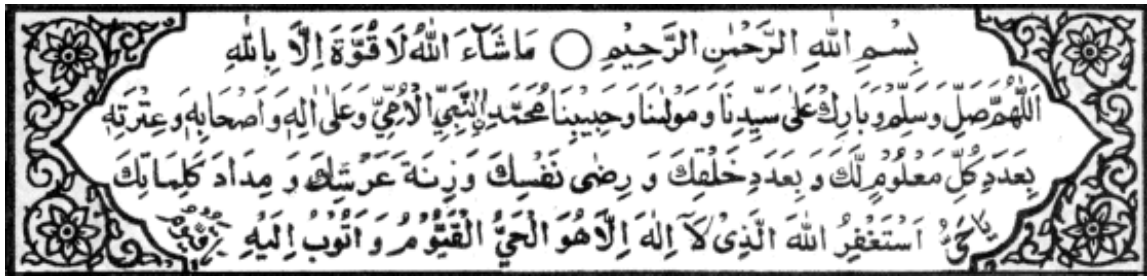 بِسْمِ اللهِ الرَّحْمٰنِ الرَّحِيْمِ ○ مَاشَآءَ اللهُ لَا قُوَّةَ اِلَّا بِاللهِ
اَللّٰهُمَّ صَلِّ وَسَلِّمْ وَبَارِكْ عَلٰى سَيِّدِنَا وَمَوْلٰىنَا وَحَبِيْبِنَا مُحَمَّدِ ۨالنَّبِيِّ الْاُمِّيِّ وَعَلٰى اٰلِهٖ وَاَصْحَابِهٖ وَعِتْرَتِهٖ
بِعَدَدِ كُلِّ مَعْلُوْمٍ لَّكَ وَ بِعَدَدِ خَلْقِكَ وَ رِضٰى نَفْسِكَ وَزِنَةَ عَرْشِكَ وَ مِدَادَ كَلِمَاتِكَ
يَا حَيُّ اَسْتَغْفِرُ اللهَ الَّذِىْ لَآ اِلٰهَ اِلَّا هُوَ الْحَيُّ الْقَيُّوْمُ وَ اَتُوْبُ اِلَيْهِ يَا قَيُّوْمُ